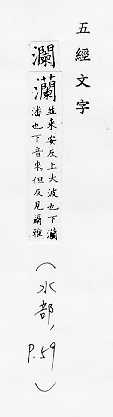 五經文字
瀾
灡
並來安反上大波也下灡
潘也下音來但反見爾雅
(水部, P.59)